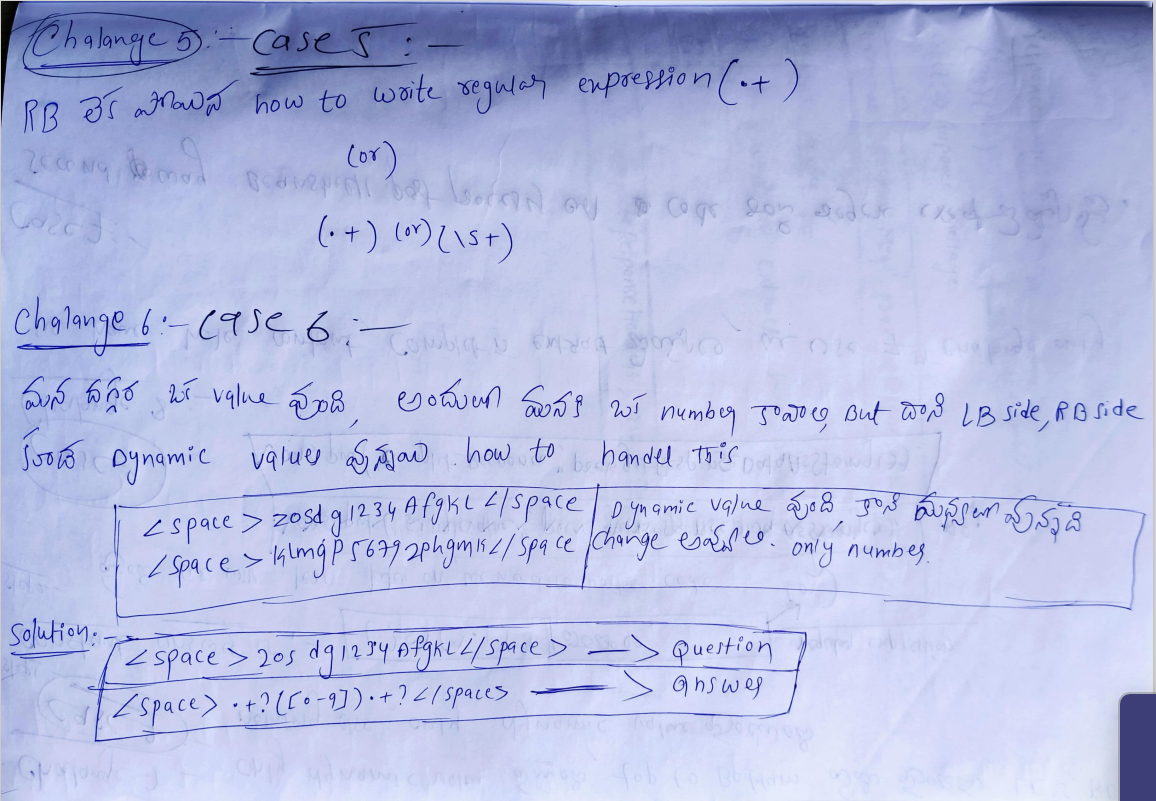 Chalange 5:- Case 5 :-
RB లేక పోయిన how to write regular expression (.+)
(or)
(.+) (or) (\S+)
Chalange 6:- Case 6 :-
మన దగ్గర ఒక value వుంది, అందులో మనకి ఒక number కావాలి, But దాని LB side, RB side
కూడా Dynamic values వున్నాయి. how to handel this
<space> zosdg1234Afgkl </space
<space> klmgp56792phgmk</space
Dynamic value వుంది, కాని మధ్యలో వున్నది
change అవ్వాలి. only number.
Solution:-
<space> 20s dg1234Afgkl</space> —> Question
<space> .+?([0-9]).+?</spaces —> answer